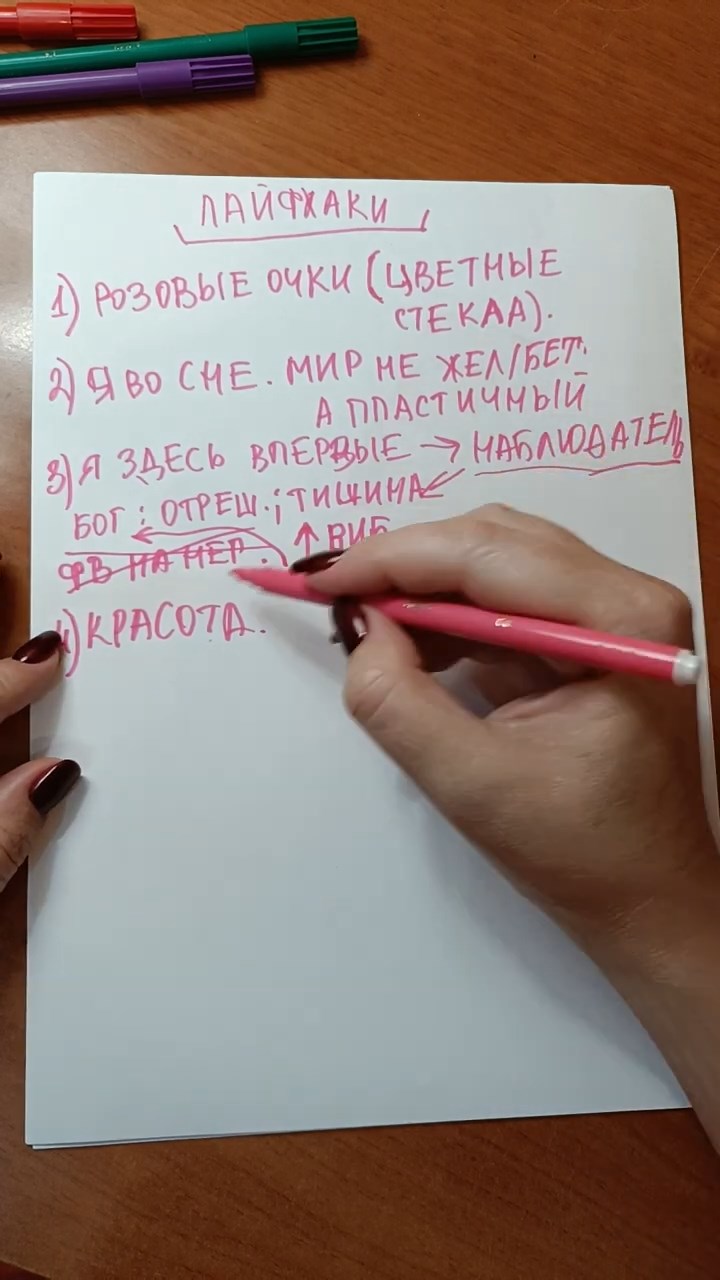 ЛАЙФХАКИ
1) РОЗОВЫЕ ОЧКИ (ЦВЕТНЫЕ
СТЕКЛА).
2) Я ВО СНЕ. МИР НЕ ЖЕЛ/БЕТ.
А ПЛАСТИЧНЫЙ
3) Я ЗДЕСЬ ВПЕРВЫЕ → НАБЛЮДАТЕЛЬ
БОГ : ОТРЕШ. ; ТИШИНА
ФВ НА МЕР. ↑ ВИБ
4) КРАСОТА.